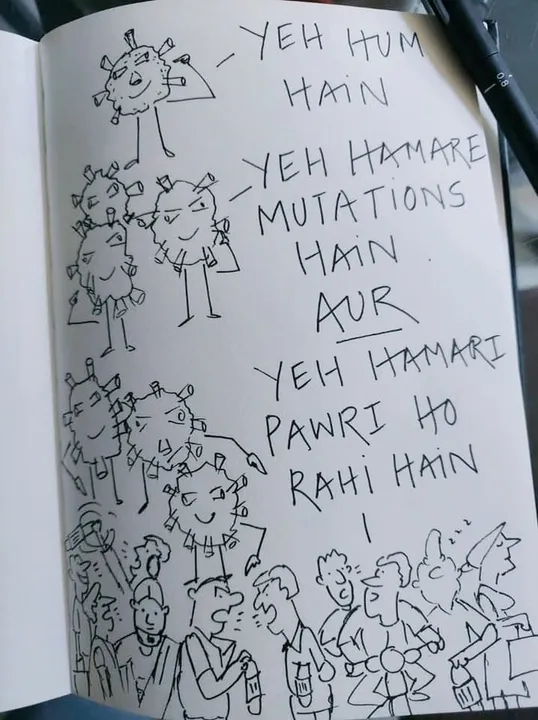 YEH HUM
HAIN
YEH HAMARE
MUTATIONS
HAIN.
AUR
YEH HAMARI
PAWRI HO
RAHI HAIN
|
zzz
0.8